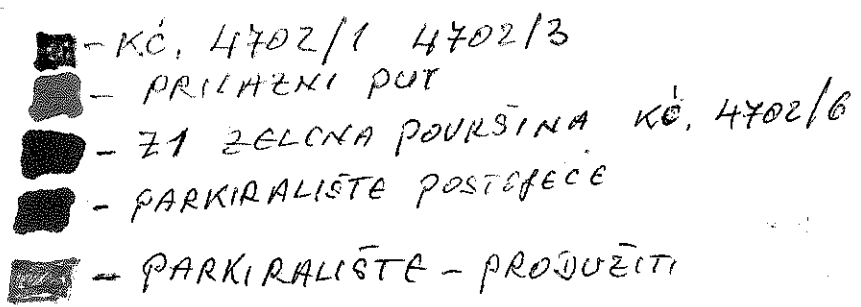 - KČ. 4702/1 4702/3
- PRILAZNI PUT
- Z1 ZELENA POVRŠINA KČ. 4702/6
- PARKIRALIŠTE POSTOJEĆE
- PARKIRALIŠTE - PRODUŽITI